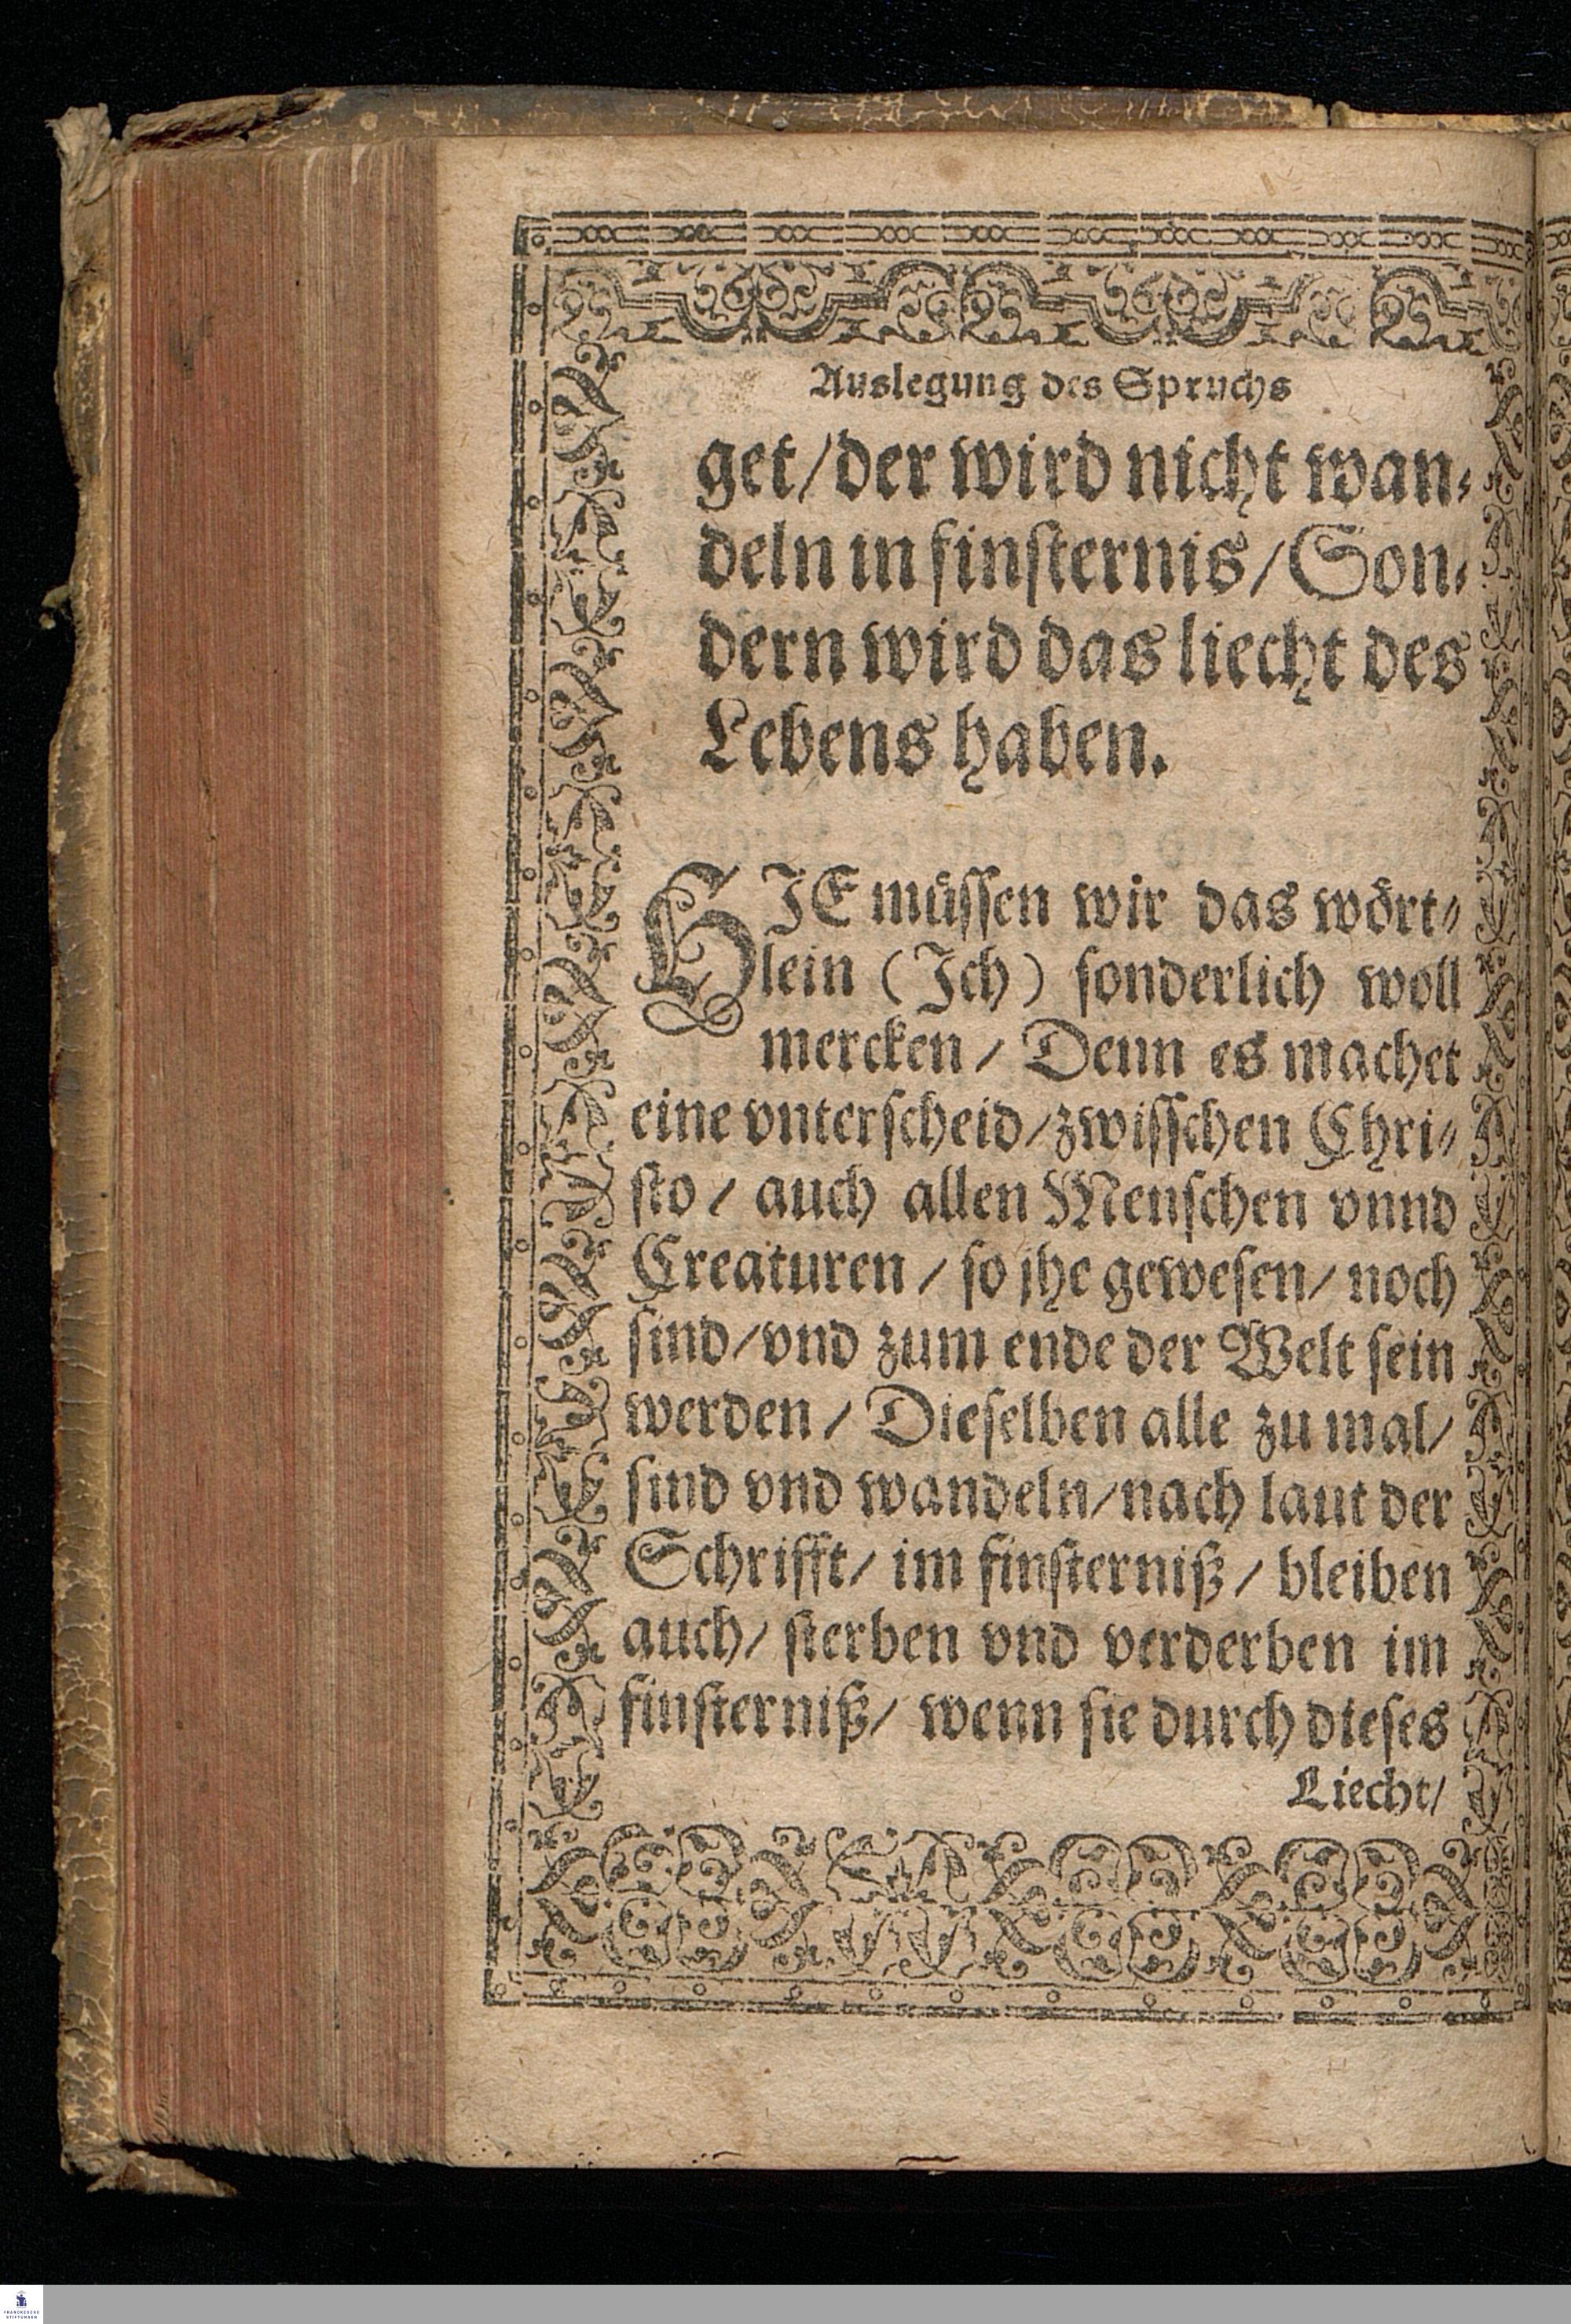 Auslegung des Spruchs
get/der wird nicht wan⸗
deln in finsternis/Son⸗
dern wird das liecht des
Lebens haben.
HJE müssen wir das wört⸗
lein (Jch) sonderlich woll
mercken/ Denn es machet
eine vnterscheid/zwisschen Chri⸗
sto/ auch allen Menschen vnnd
Creaturen/ so jhe gewesen/ noch
sind/vnd zum ende der Welt sein
werden/ Dieselben alle zu mal/
sind vnd wandeln/nach laut der
Schrifft/ im finsterniß/ bleiben
auch/ sterben vnd verderben im
finsterniß/ wenn sie durch dieses
Liecht/
FRANCKESCHE
STIFTUNGEN